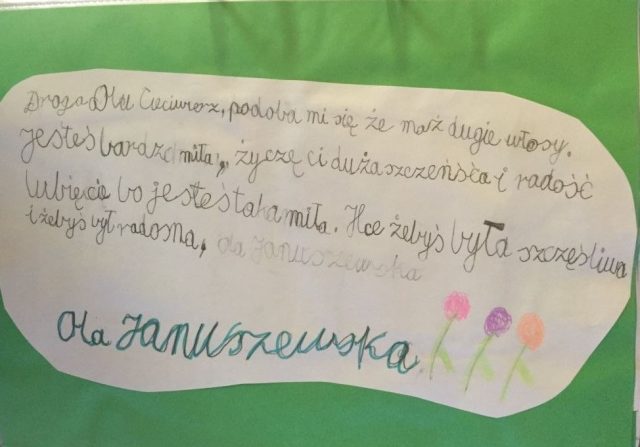 Droga Olu Ciećwierz, podoba mi się że marz dugie włosy.
jesteś bardzo miła, życzę ci duża szczeńśca i radość
lubięcie bo jesteś taka miła. Hce żebyś była szczęśliwa
i żebyś był radosna, Ola Januszewska
Ola Januszewska